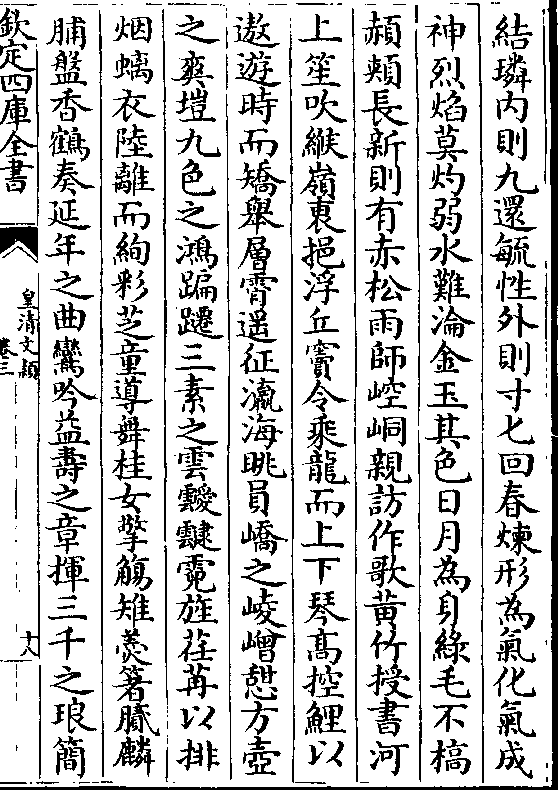 結璘内則九還毓性外則寸匕回春煉形為氣化氣成
神烈焰莫灼弱水難淪金玉其色日月為身綠毛不槁
頳頰長新則有赤松雨師崆峒親訪作歌黄竹授書河
上笙吹緱嶺裵挹浮丘竇令乘龍而上下琴髙控鯉以
遨遊時而矯舉層霄遥征瀛海眺員嶠之崚嶒憇方壺
之爽塏九色之鴻蹁躚三素之雲靉靆霓旌荏苒以排
烟螭衣陸離而絢彩芝童導舞桂女擎觴雉羮箸膩麟
脯盤香鶴奏延年之曲鸞吟益壽之章揮三千之琅簡
欽定四庫全書
皇清文穎
卷三
十八